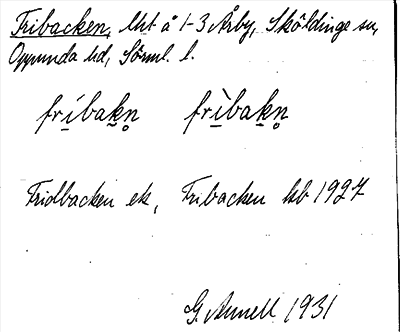 Fribacken, lht å 1-3 Årby, Sköldinge sn,
Oppunda hd, Sörml. l.
frí̱bak̲n̥ frì̱bak̲n̥
Fridbacken ek, Fribacken hb 1927
G Annell 1931